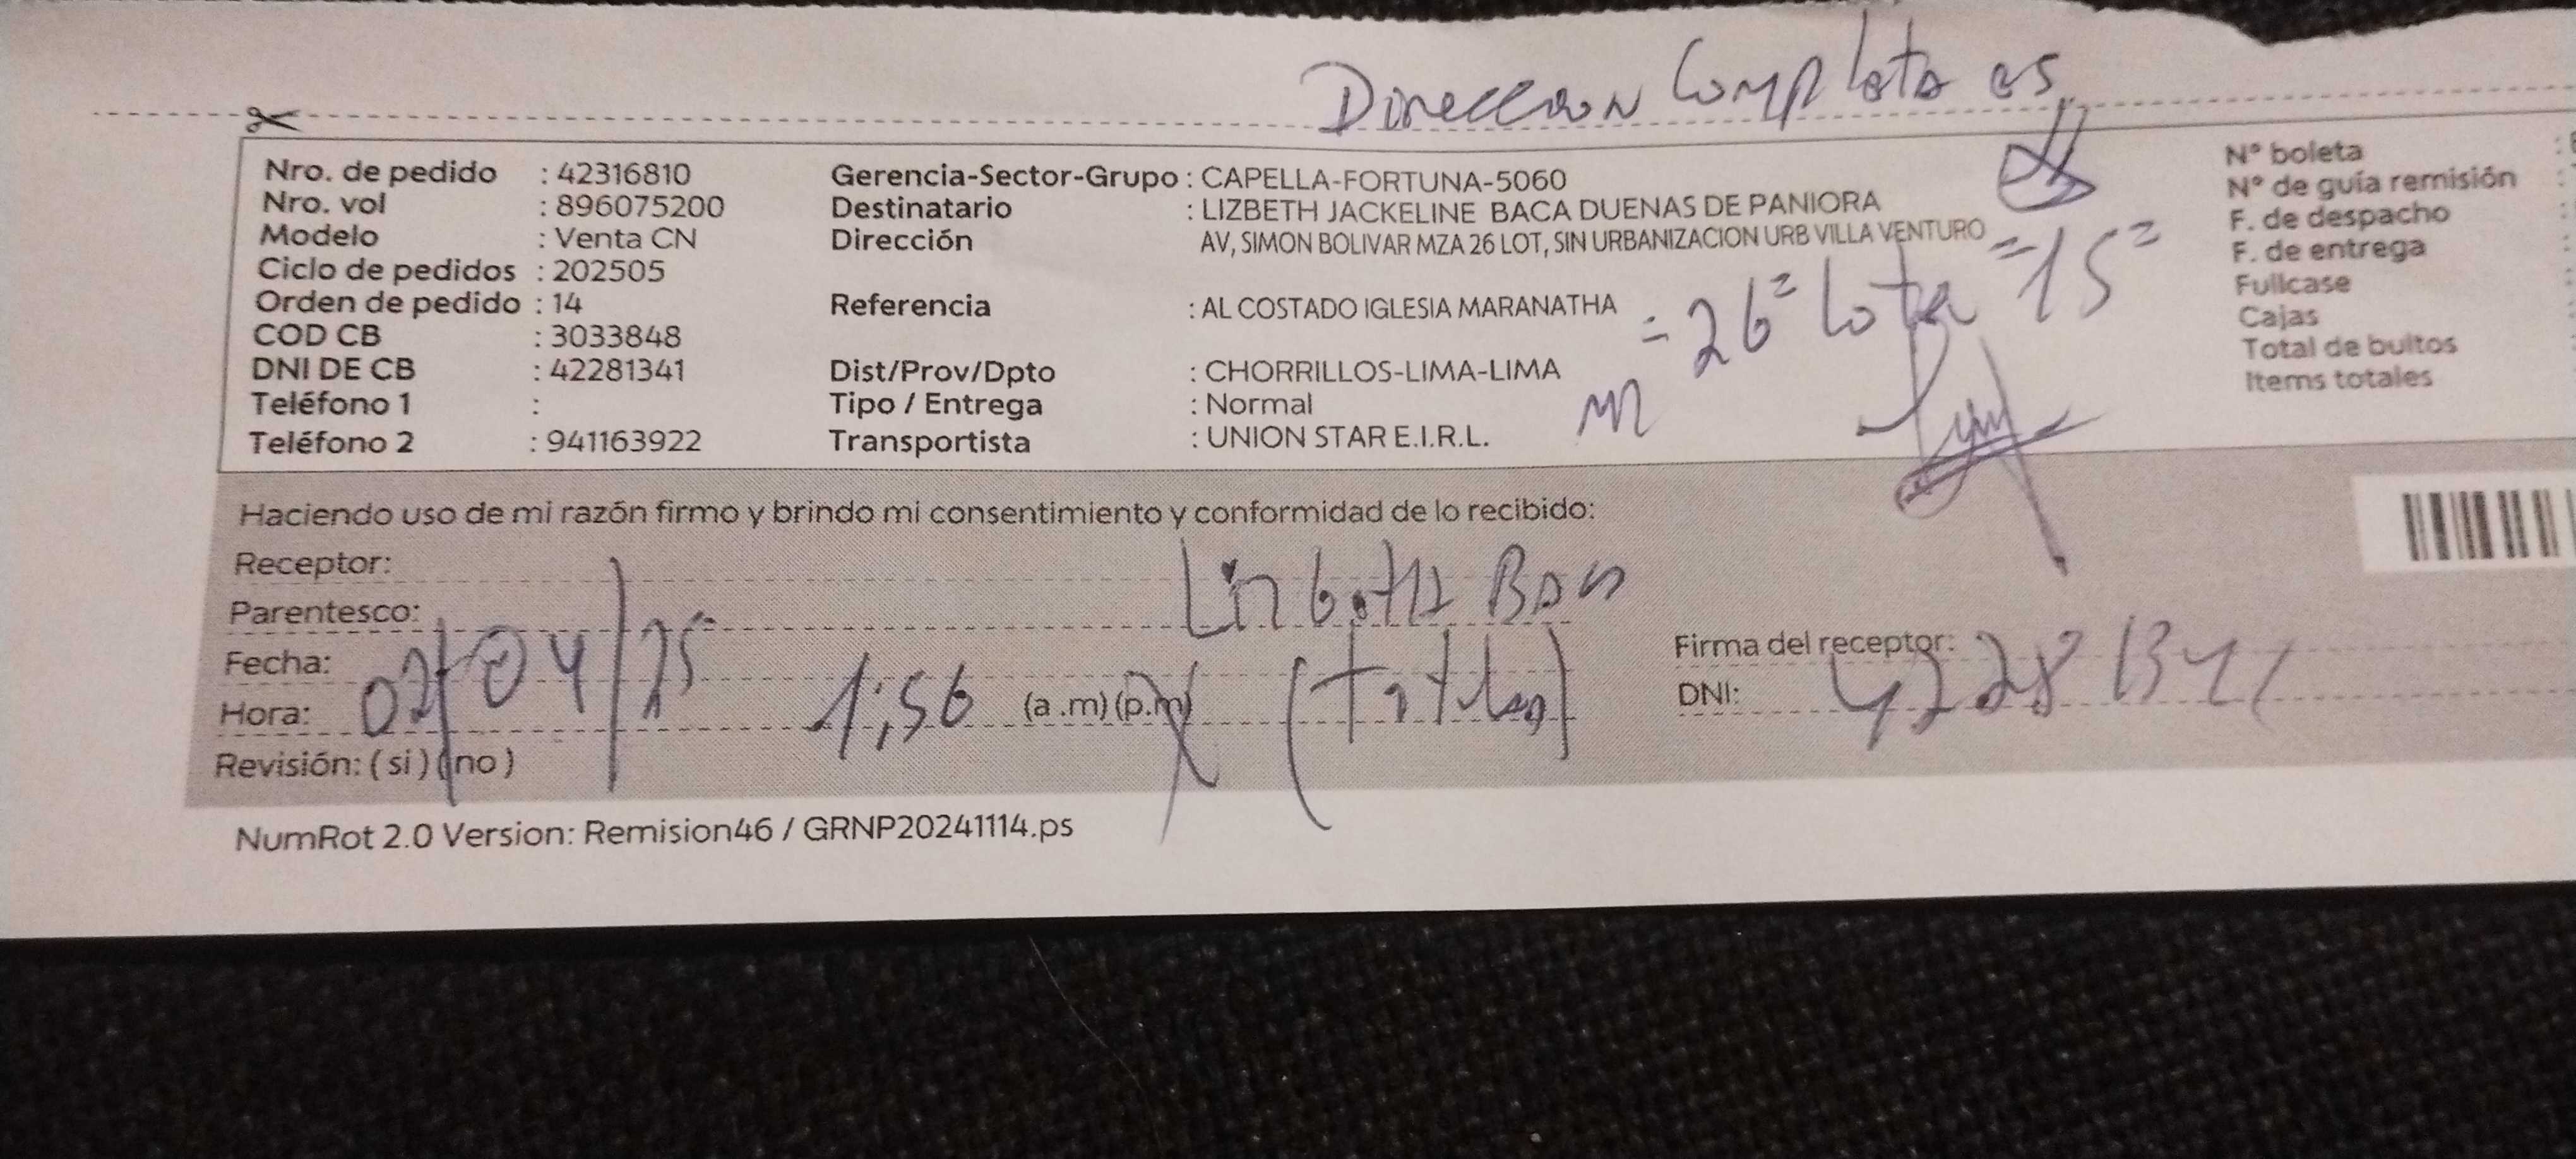 Direccion Completa es
Nro. de pedido : 42316810
Nro. vol : 896075200
Modelo : Venta CN
Ciclo de pedidos : 202505
Orden de pedido : 14
COD CB : 3033848
DNI DE CB : 42281341
Teléfono 1 :
Teléfono 2 : 941163922
Gerencia-Sector-Grupo : CAPELLA-FORTUNA-5060
Destinatario : LIZBETH JACKELINE BACA DUENAS DE PANIORA
Dirección AV, SIMON BOLIVAR MZA 26 LOT, SIN URBANIZACION URB VILLA VENTURO
Referencia : AL COSTADO IGLESIA MARANATHA
Dist/Prov/Dpto : CHORRILLOS-LIMA-LIMA
Tipo / Entrega : Normal
Transportista : UNION STAR E.I.R.L.
26 lote 15
Nº boleta
Nº de guía remisión
F. de despacho
F. de entrega
Fullcase
Cajas
Total de bultos
Items totales
Haciendo uso de mi razón firmo y brindo mi consentimiento y conformidad de lo recibido:
Receptor:
Parentesco:
Fecha: 02/04/25
Hora: 1:56 (a.m) (p.m)
Revisión: ( si ) ( no )
Firma del receptor:
DNI: 42281341
NumRot 2.0 Version: Remision46 / GRNP20241114.ps